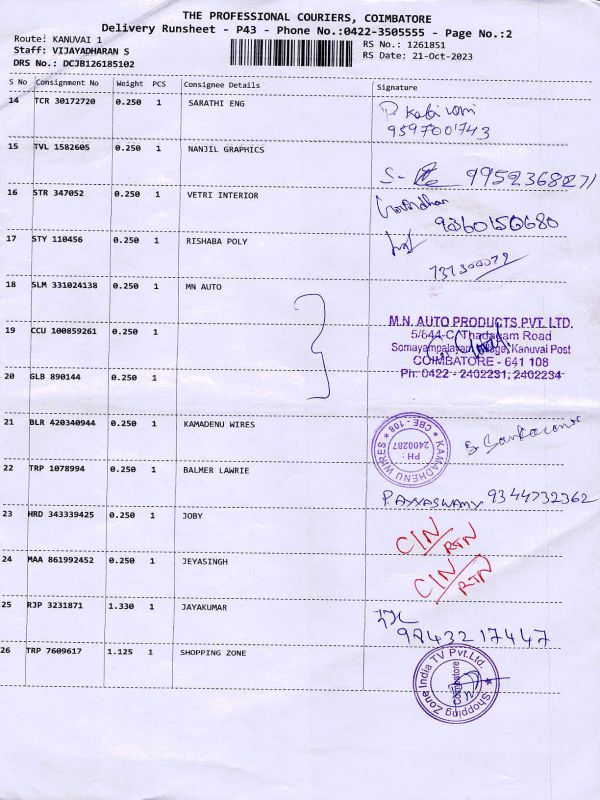 THE PROFESSIONAL COURIERS, COIMBATORE
Delivery Runsheet - P43 - Phone No.:0422-3505555 - Page No.:2
Route: KANUVAI 1
RS No.: 1261851
Staff: VIJAYADHARAN S
RS Date: 21-Oct-2023
DRS No.: DCJB126185102
S No Consignment No Weight PCS Consignee Details Signature
14 TCR 30172720 0.250 1 SARATHI ENG
9597001743
15 TVL 1582605 0.250 1 NANJIL GRAPHICS
9952368271
16 STR 347052 0.250 1 VETRI INTERIOR
9360150680
17 STY 110456 0.250 1 RISHABA POLY
18 SLM 331024138 0.250 1 MN AUTO
M.N. AUTO PRODUCTS PVT. LTD.
19 CCU 100859261 0.250 1
5/644-C, Thadagam Road
Somayampalayam Village, Kanuvai Post
COIMBATORE - 641 108
20 GLB 890144 0.250 1
Ph: 0422 - 2402231, 2402234
21 BLR 420340944 0.250 1 KAMADENU WIRES
KAMADHENU WIRES CBE - 108
PH : 2400287
22 TRP 1078994 0.250 1 BALMER LAWRIE
P. AYYASWAMY 9344732362
23 HRD 343339425 0.250 1 JOBY
C/N RTN
24 MAA 861992452 0.250 1 JEYASINGH
C/N RTN
25 RJP 3231871 1.330 1 JAYAKUMAR
9843217447
26 TRP 7609617 1.125 1 SHOPPING ZONE
Shopping Zone India TV Pvt.Ltd.
Coimbatore